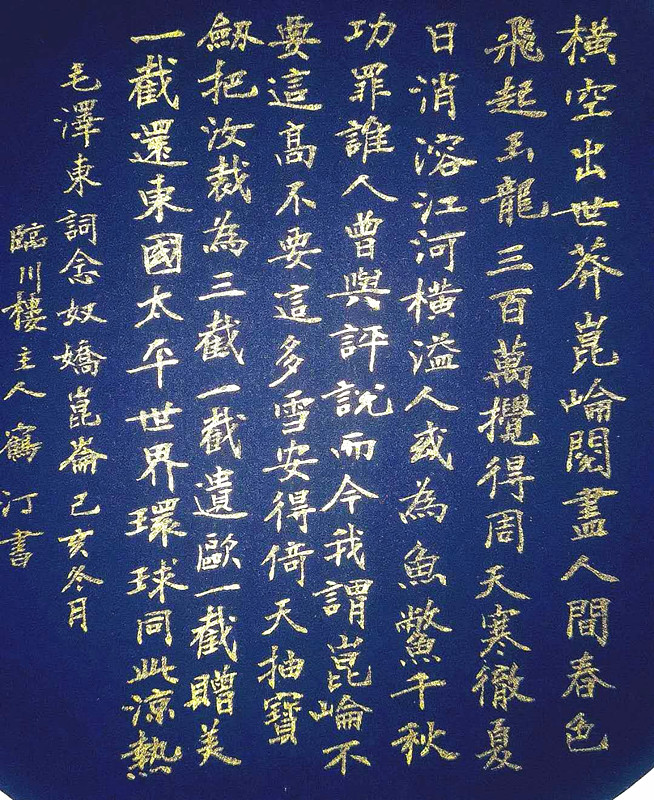 橫空出世莽崑崘閱盡人間春色
飛起玉龍三百萬攪得周天寒徹夏
日消溶江河橫溢人或為魚鱉千秋
功罪誰人曾與評說而今我謂崑崘不
要這高不要這多雪安得倚天抽寶
劔把汝裁為三截一截遺歐一截贈美
一截還東國太平世界環球同此涼熱
毛澤東詞念奴嬌崑崙己亥冬月
臨川樓主人鶴汀書